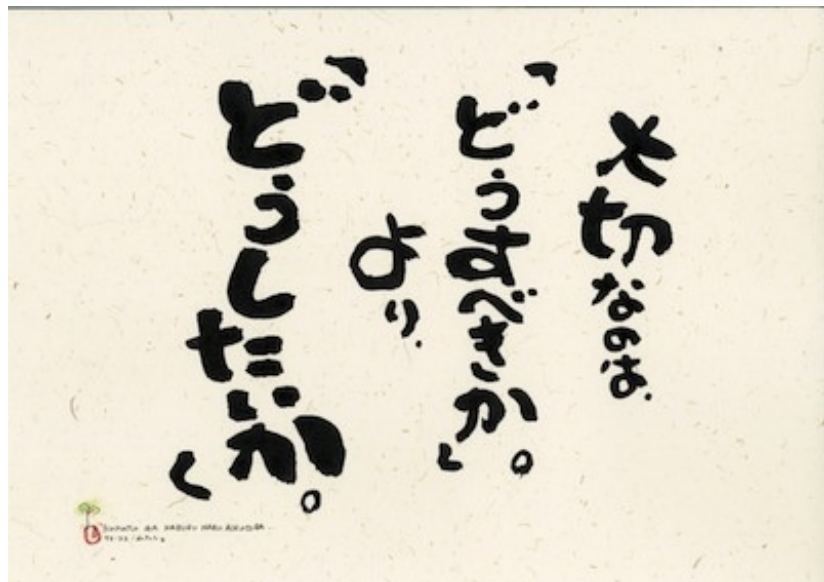 大切なのは、
「どうすべきか。」
より、
「どうしたいか。」